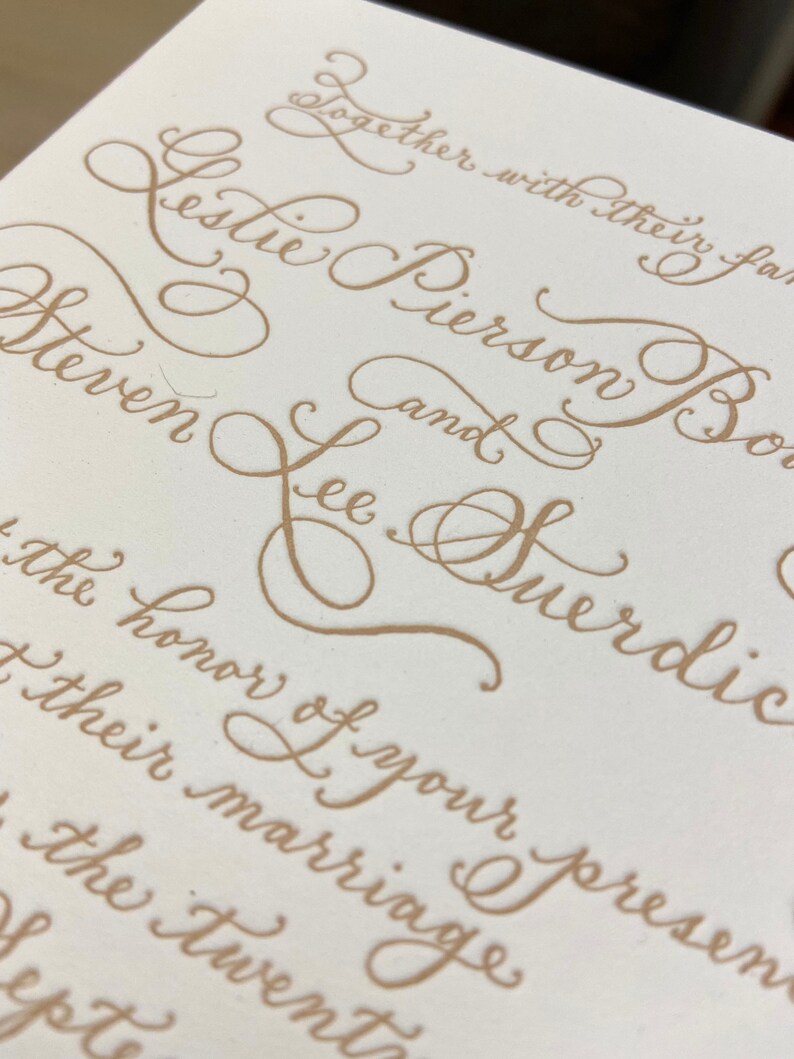 Together with their fam
Leslie Pierson Bo
and
Steven Lee Suerdic
the honor of your presenc
their marriage
the twent
Septe